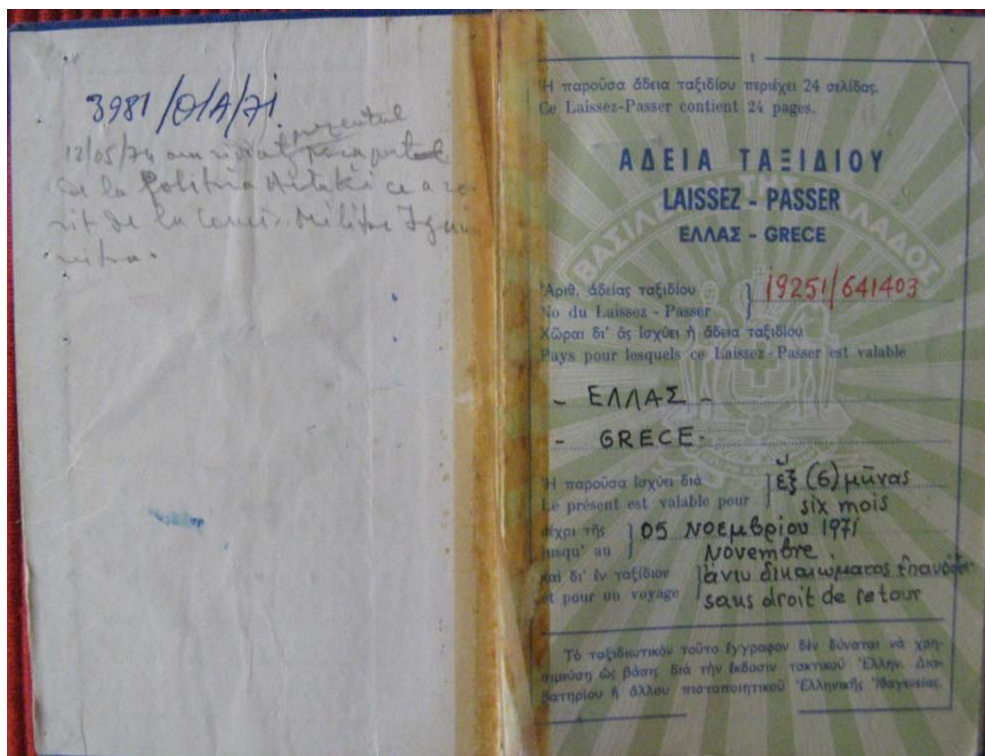 3981/Θ/Α/71
12/05/74
de la Politia
1
Ἡ παροῦσα ἄδεια ταξιδίου περιέχει 24 σελίδας.
Ce Laissez-Passer contient 24 pages.
ΑΔΕΙΑ ΤΑΞΙΔΙΟΥ
LAISSEZ - PASSER
ΕΛΛΑΣ - GRECE
ΒΑΣΙΛΕΙΟΝ ΤΗΣ ΕΛΛΑΔΟΣ
Ἀριθ. ἀδείας ταξιδίου
No du Laissez - Passer
19251/641403
Χῶραι δι' ἃς ἰσχύει ἡ ἄδεια ταξιδίου
Pays pour lesquels ce Laissez - Passer est valable
- ΕΛΛΑΣ -
- GRECE -
Ἡ παροῦσα ἰσχύει διὰ ἕξ (6) μῆνας
Le présent est valable pour six mois
μέχρι τῆς 05 Νοεμβρίου 1971
jusqu' au Novembre
καὶ δι' ἓν ταξίδιον ἄνευ δικαιώματος
et pour un voyage sans droit de retour
Τὸ ταξιδιωτικὸν τοῦτο ἔγγραφον δὲν δύναται νὰ χρη-
σιμεύσῃ ὡς βάσις διὰ τὴν ἔκδοσιν τακτικοῦ Ἑλλην. Δια-
βατηρίου ἢ ἄλλου πιστοποιητικοῦ Ἑλληνικῆς Ἰθαγενείας.